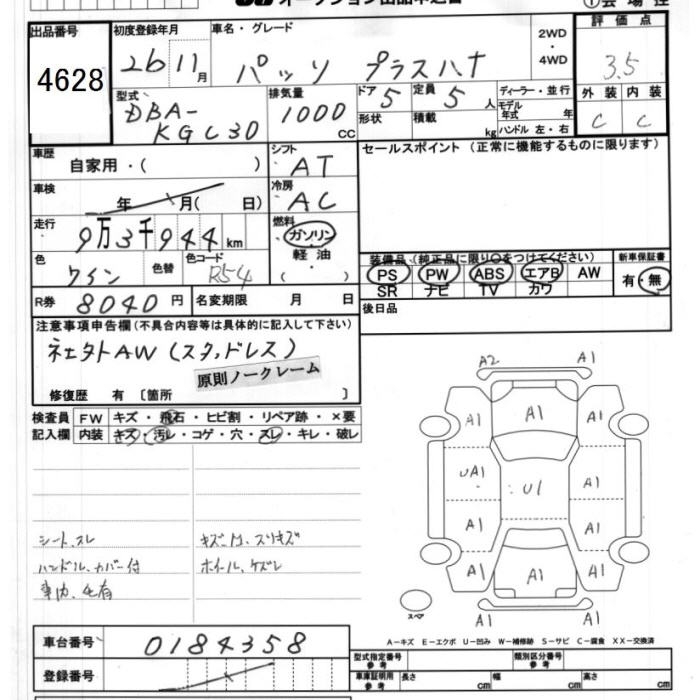 出品番号 4628
初度登録年月 26 11月
車名・グレード パッソ プラスハナ
2WD・4WD
評価点 3.5
型式 DBA-KGC30
排気量 1000 CC
ドア 5
定員 5人
ディーラー・並行
モデル年式 年
外装 内装
C C
形状
積載 kg
ハンドル 左・右
車歴 自家用・( )
シフト AT
セールスポイント (正常に機能するものに限ります)
車検 年 月( 日)
冷房 AC
走行 9万3千944km
燃料 ガソリン
軽油・( )
色 ワイン
色替
色コード R54
装備品 (純正品に限り○をつけてください)
新車保証書
PS PW ABS エアB AW
有・無
SR ナビ TV カワ
R券 8040円
名変期限 月 日
後日品
注意事項申告欄 (不具合内容等は具体的に記入して下さい)
社外AW (スタッドレス)
原則ノークレーム
修復歴 有 〔箇所 〕
検査員 FW キズ・飛石・ヒビ割・リペア跡・×要
記入欄 内装 キズ・汚レ・コゲ・穴・スレ・キレ・破レ
A2 A1
A1 A1 A1
UA1 U1 A1
A1 A1
A1 A1 A1
A1 A1
シート、スレ
ハンドル、カバー付
車内、毛有
ホイール、ケズレ
スペア
A−キズ E−エクボ U−凹み W−補修跡 S−サビ C−腐食 XX−交換済
車台番号 0184358
登録番号
型式指定番号 参考
類別区分番号 参考
車庫証明用 参考 長さ cm 幅 cm 高さ cm